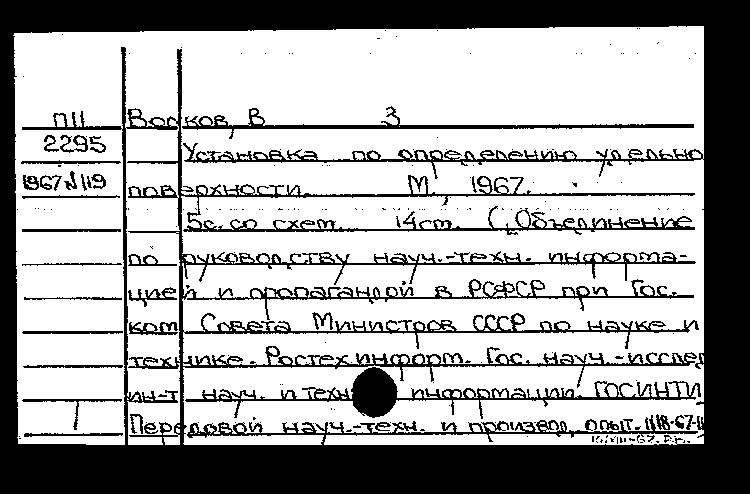 П11 Волков, В З
2295 Установка по определению удельно
1967 № 119 поверхности. М., 1967.
5с. со схем. 14см. (Объединение
по руководству науч.-техн. информа-
цией и пропагандой в РСФСР при Гос.
ком Совета Министров СССР по науке и
технике. Ростехинформ. Гос. науч.-исслед
ин-т науч. и техн информации. ГОСИНТИ
Передовой науч.-техн. и производ. опыт.